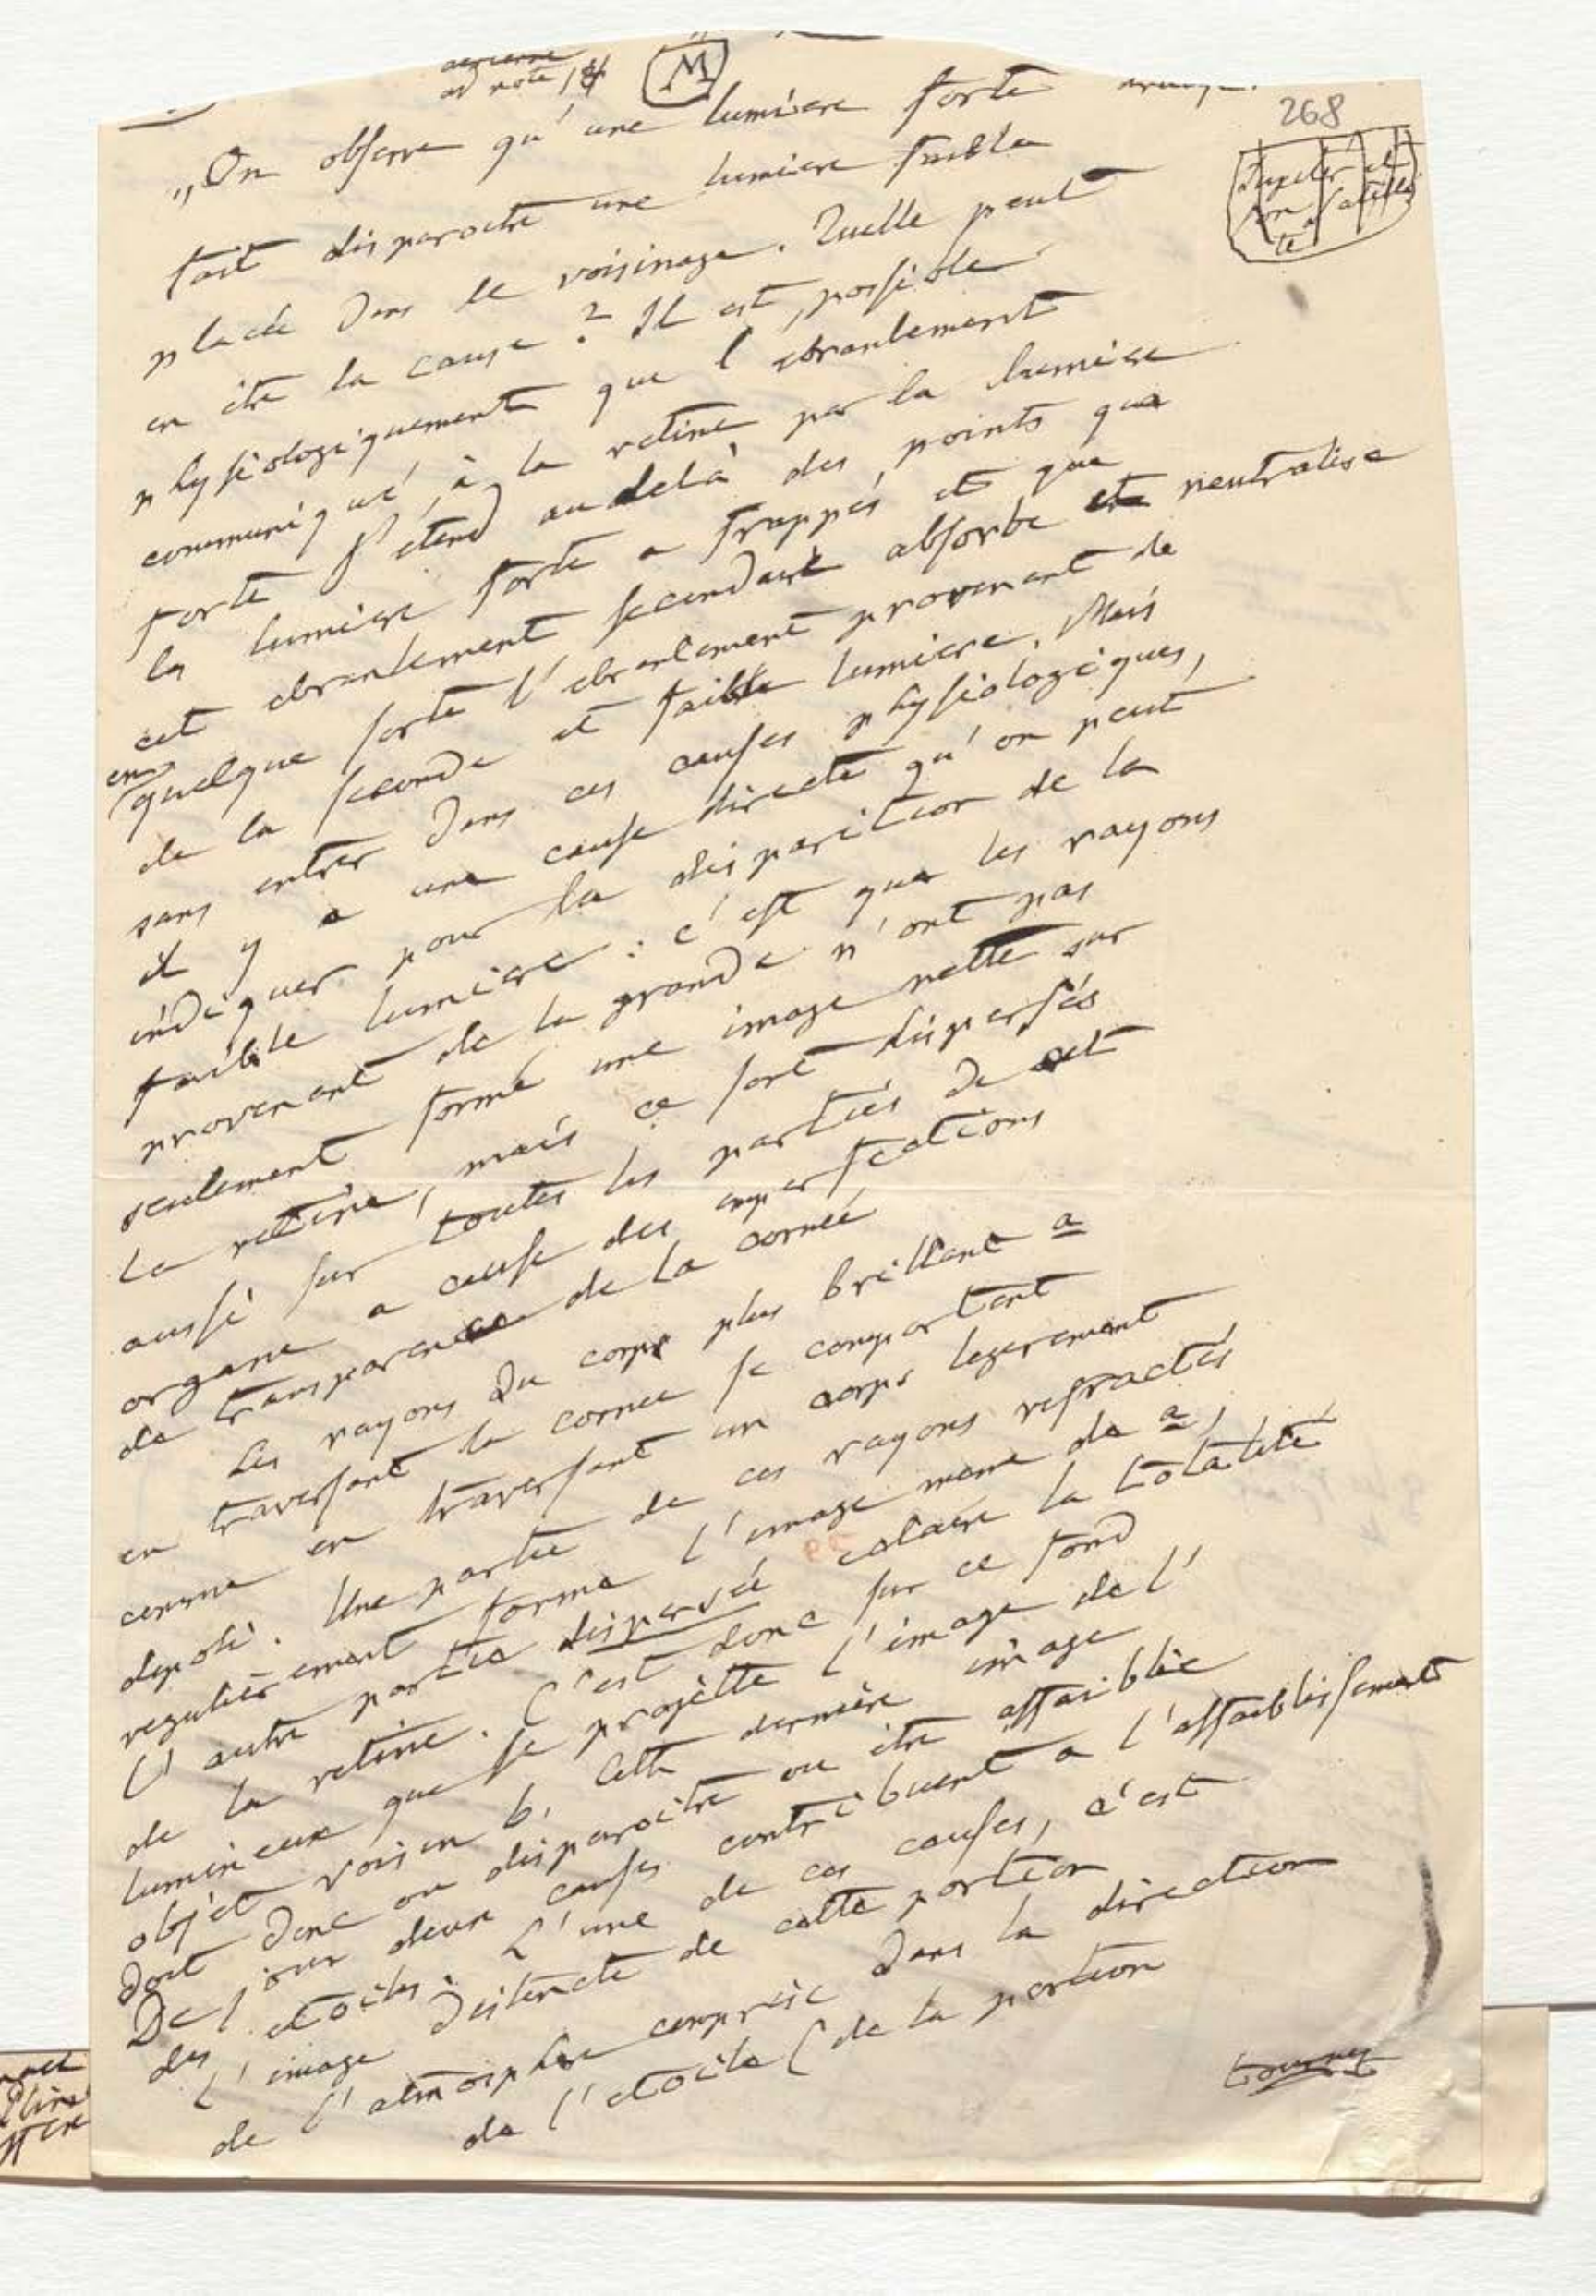 ad note 18
M
268
Jupiter et
son Satelli
te
„On observe qu'une lumiere forte
fait disparoitre une lumiere faible
placée dans le voisinage. Quelle peut
en etre la cause? Il est possible
physiologiquement que l'ebranlement
communiqué à la retine par la lumiere
forte s'etend au delà des points que
la lumiere forte a frappés et que
cet ebranlement secondaire absorbe et neutralise
en quelque sorte l'ebranlement provenant de
de la seconde et faible lumiere. Mais
sans entrer dans ces causes physiologiques,
il y a une cause directe qu'on peut
indiquer pour la disparition de la
faible lumiere: c'est que les rayons
provenant de la grande n'ont pas
seulement formé une image nette sur
la retine, mais se sont dispersés
aussi sur toutes les parties de cet
organe a cause des imperfections
de transparence de la cornée
Les rayons du corps plus brillant a
en traversant la cornee se comportent
comme en traversant un corps legerement
depoli. Une partie de ces rayons refractés
regulierement forme l'image meme de a,
l'autre partie dispersée eclaire la totalité
de la retine. C'est donc sur ce fond
lumineux que se projette l'image de l'
objet voisin b. Cette derniere image
doit donc ou disparoitre ou etre affaiblie
De jour deux causes contribuent a l'affaiblissement
des etoiles. L'une de ces causes, c'est
l'image distincte de cette portion
de l'atmosphere comprise dans la direction
de l'etoile (de la portion
tournez